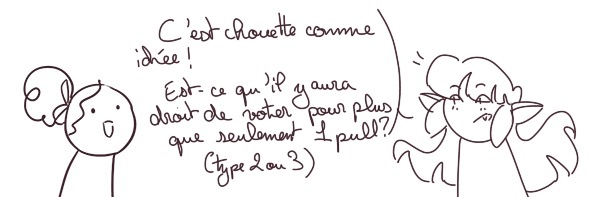 C'est chouette comme
idée !
Est-ce qu'il y aura
droit de voter pour plus
que seulement 1 pull?
(type 2 ou 3)